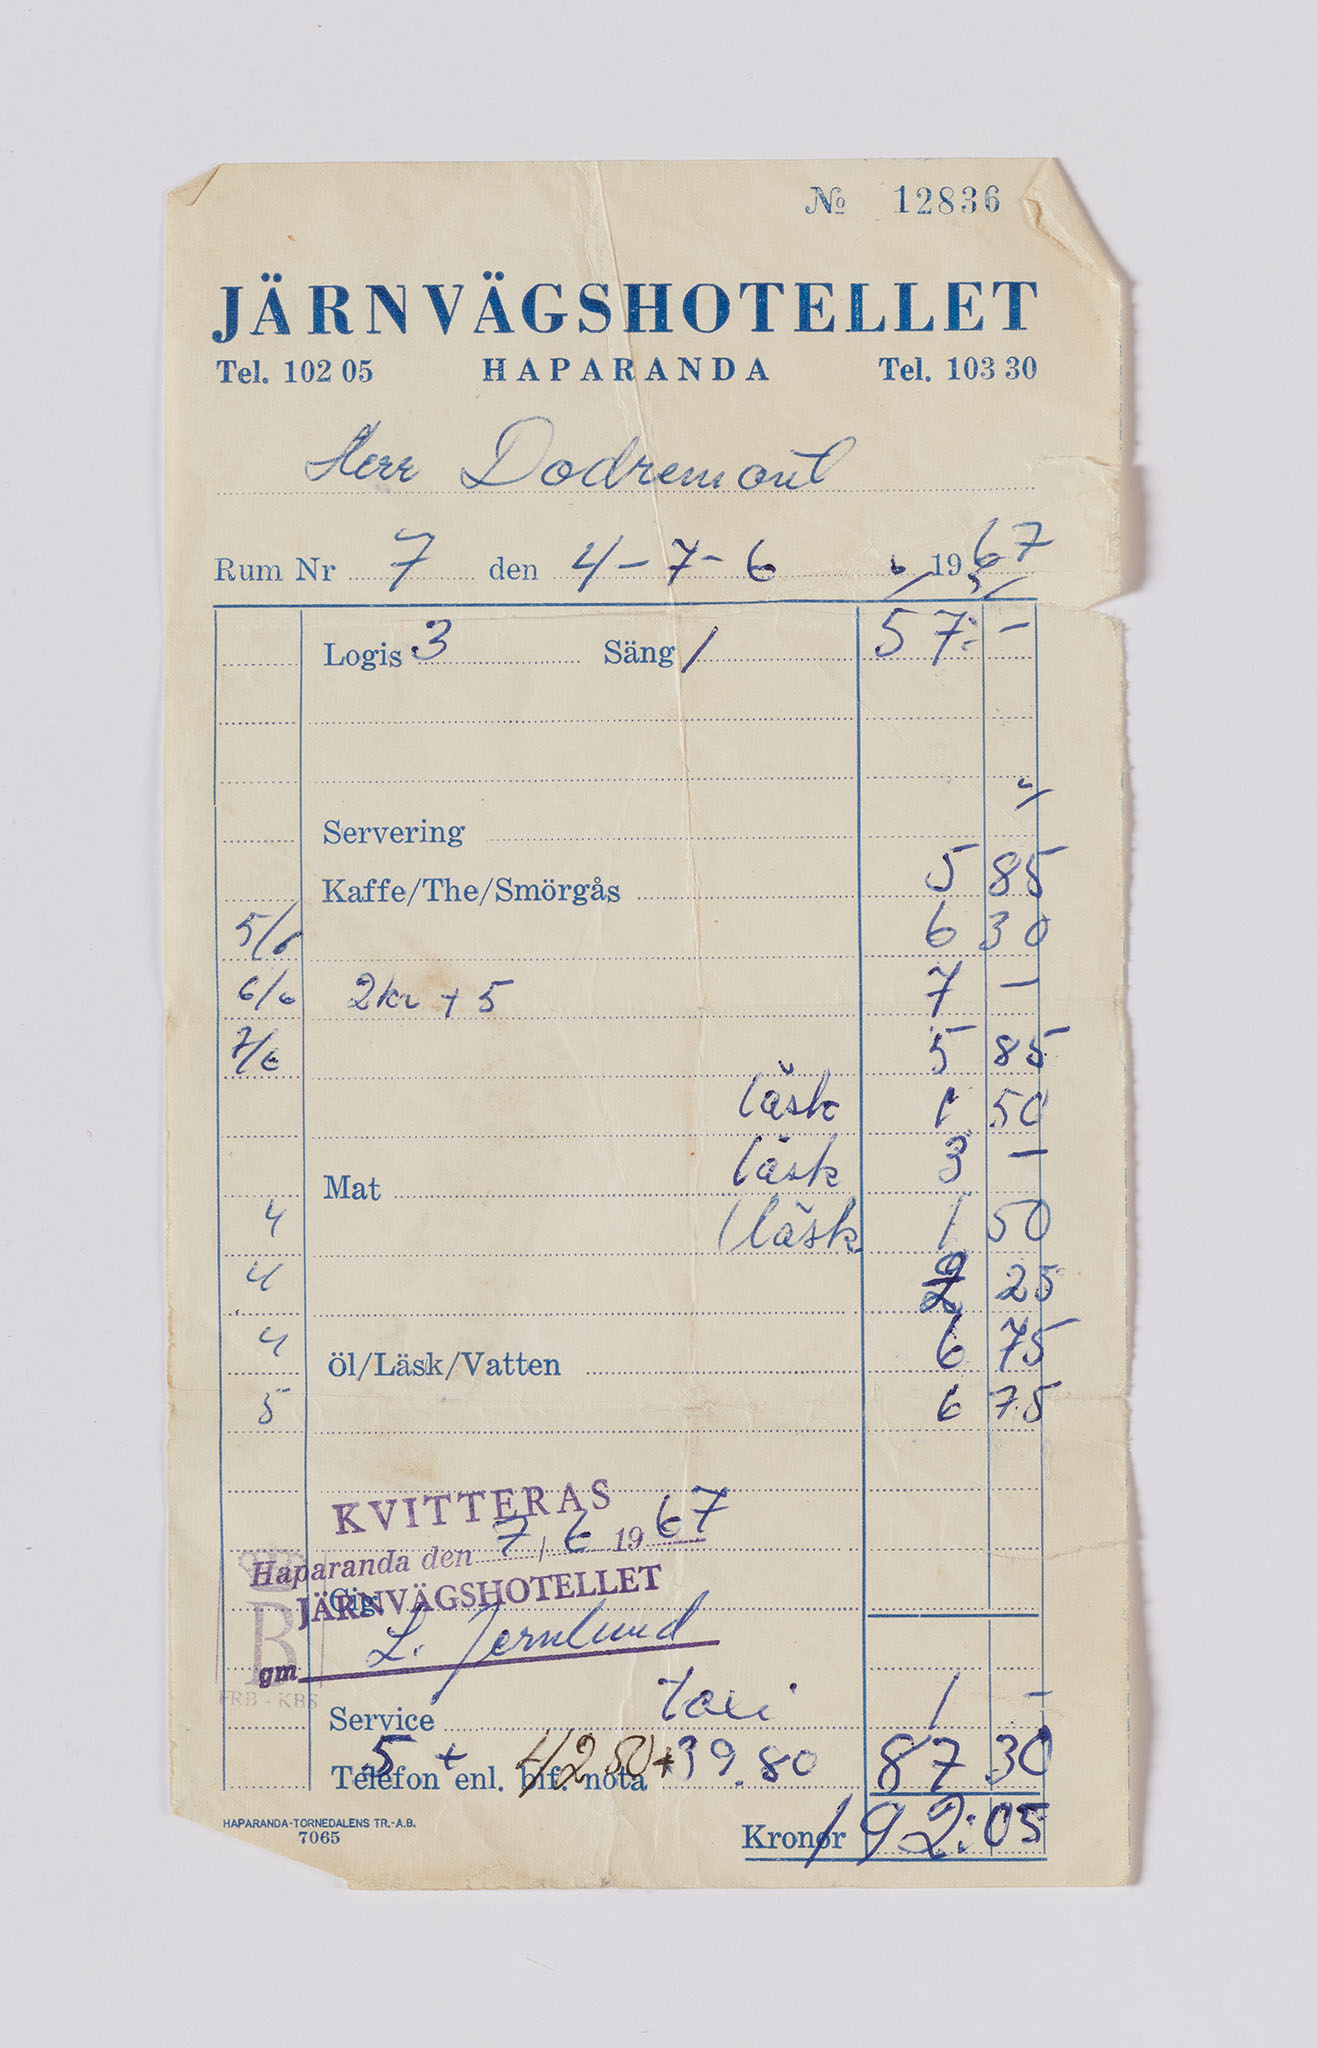 № 12836
JÄRNVÄGSHOTELLET
Tel. 102 05 HAPARANDA Tel. 103 30
Herr Dodremont
Rum Nr 7 den 4-7-6 1967
Logis 3 Säng 1 57:-
Servering
Kaffe/The/Smörgås 5 85
5/6 6 30
6/6 2kr + 5 7 -
7/6 5 85
läsk 1 50
Mat läsk 3 -
4 1 läsk 1 50
4 2 25
4 Öl/Läsk/Vatten 6 75
5 6 75
KVITTERAS
Haparanda den 7/6 1967
Cig.
JÄRNVÄGSHOTELLET
B
L. Jernlund
gm
FRB - KBS
Service taxi 1 -
5 + 42 50 + 39.80 87 30
Telefon enl. bif. nota
Kronor 192:05
HAPARANDA-TORNEDALENS TR.-A.B.
7065